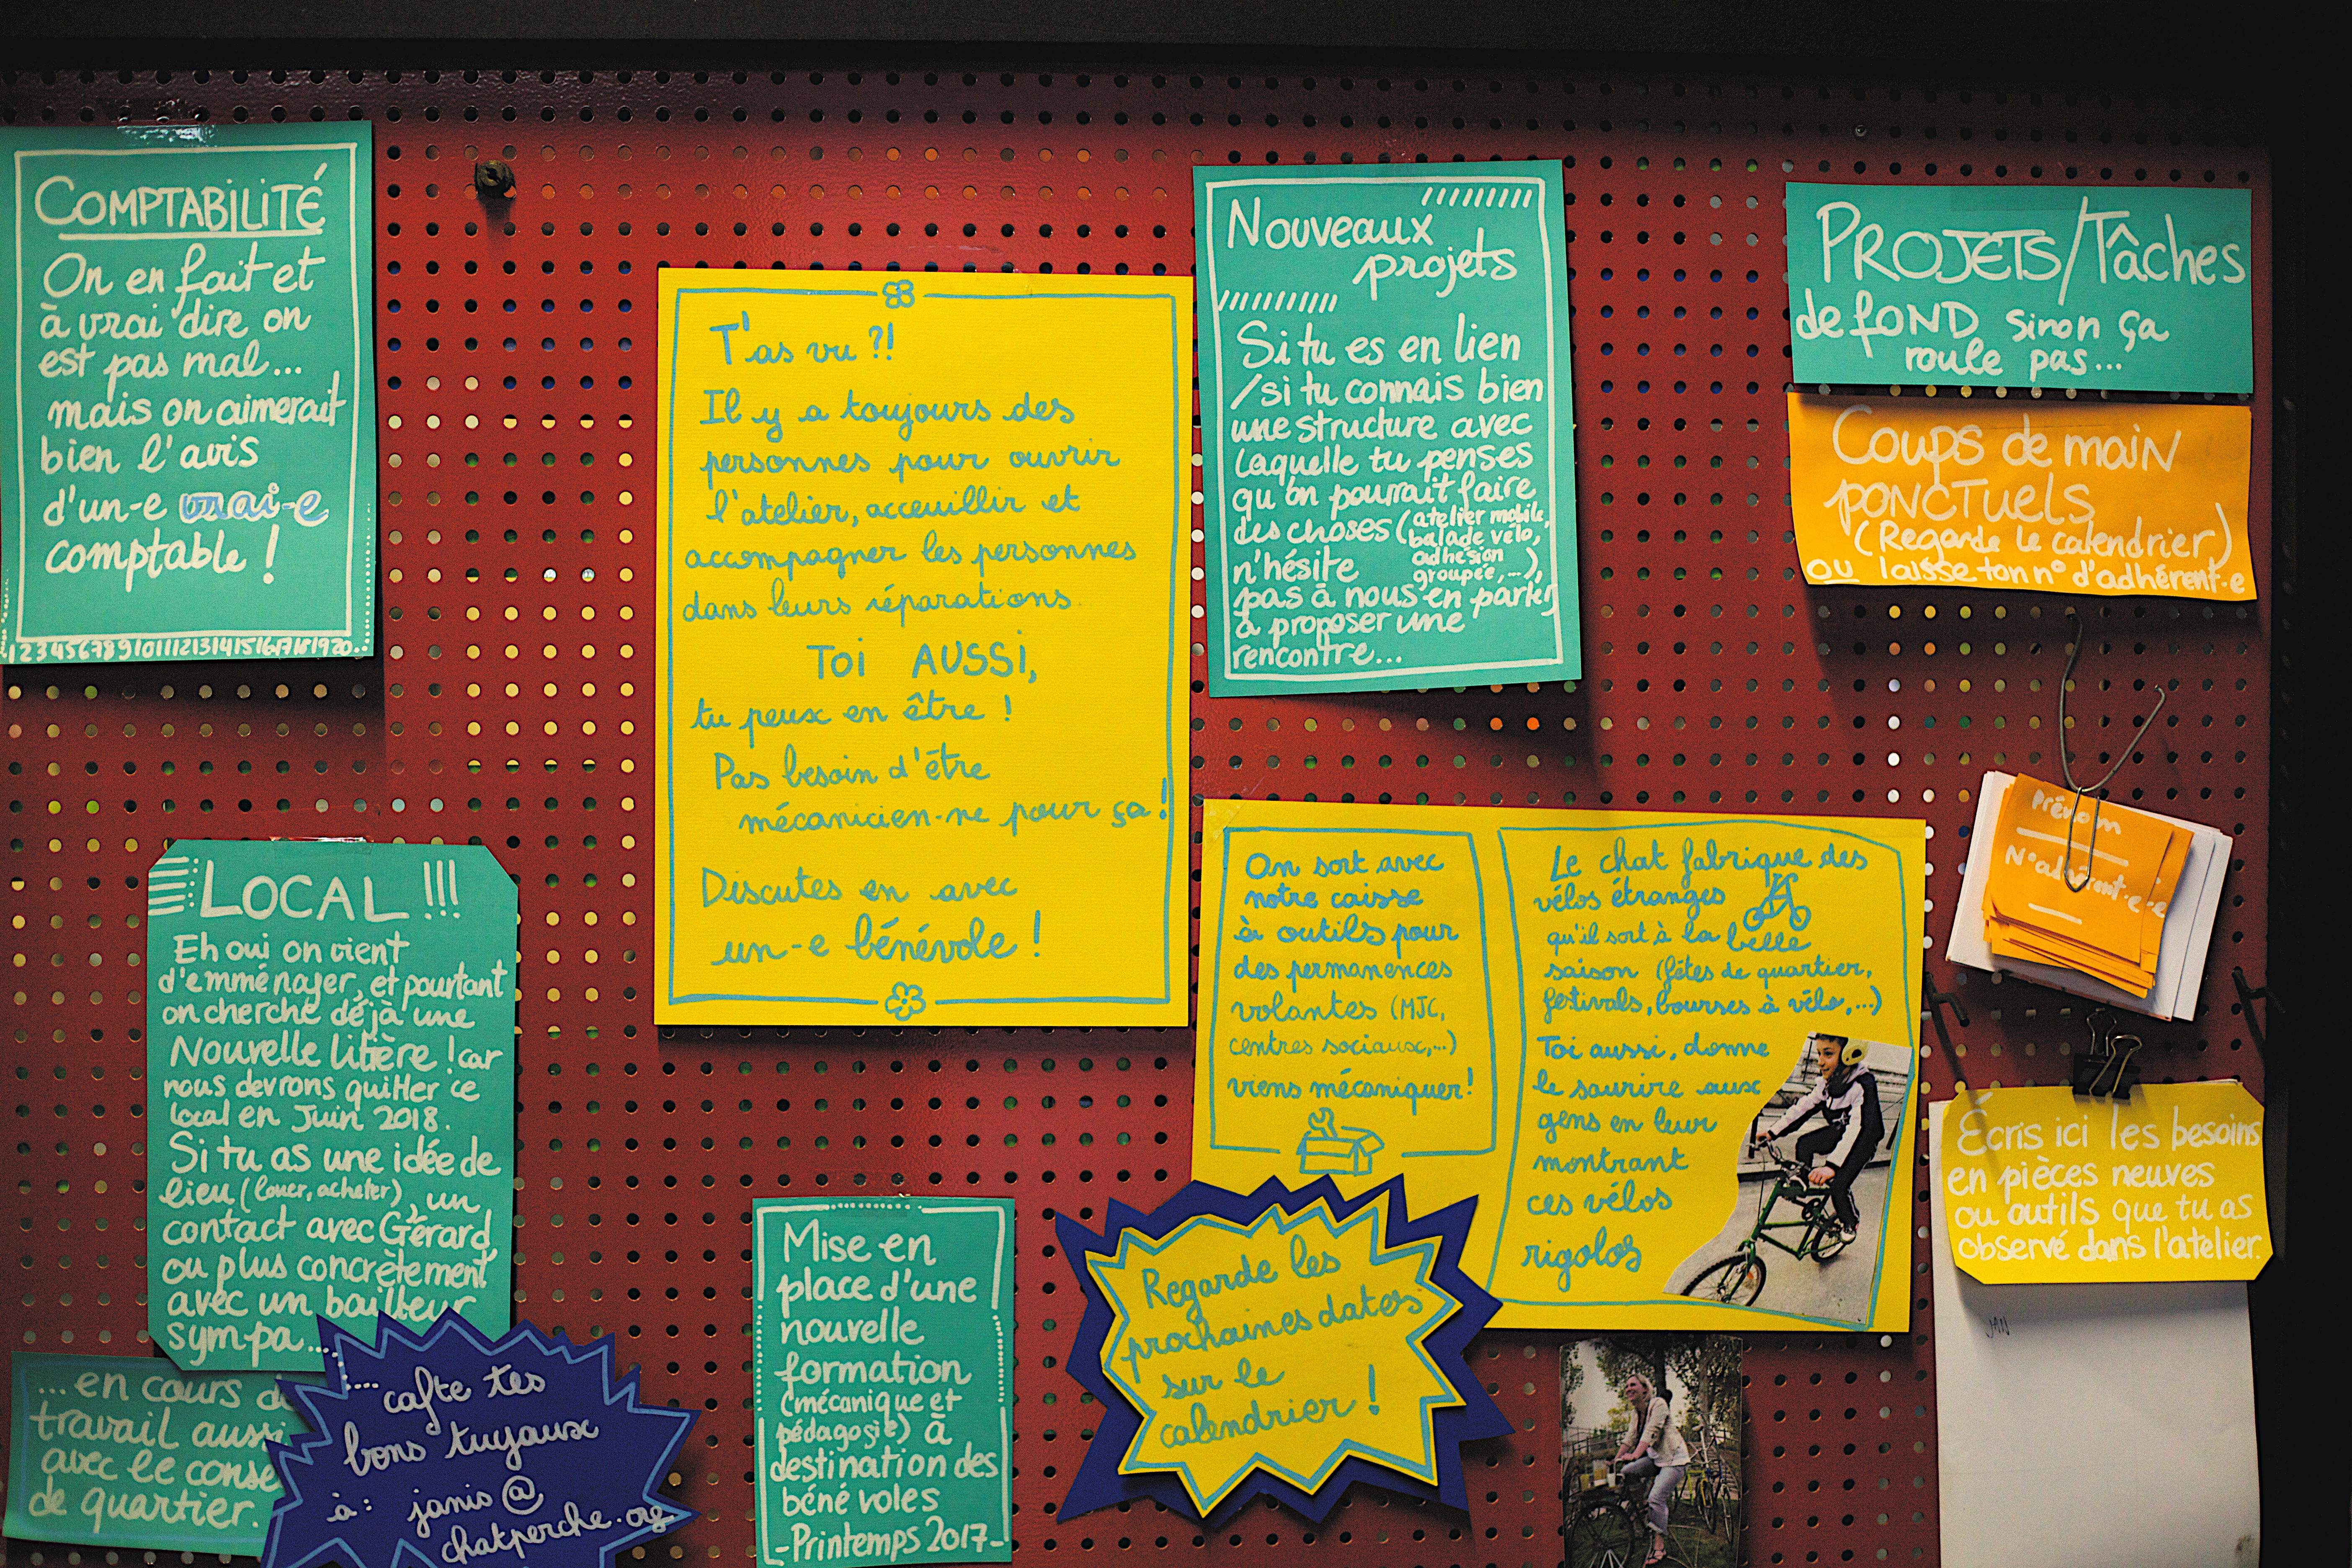 COMPTABILITÉ
On en fait et
à vrai dire on
est pas mal...
mais on aimerait
bien l'avis
d'un-e vrai-e
comptable !
1234567891011121314151617181920..
T'as vu ?!
Il y a toujours des
personnes pour ouvrir
l'atelier, acceuillir et
accompagner les personnes
dans leurs réparations.
TOI AUSSI,
tu peux en être !
Pas besoin d'être
mécanicien-ne pour ça !
Discutes en avec
un-e bénévole !
Nouveaux
projets
Si tu es en lien
/si tu connais bien
une structure avec
laquelle tu penses
qu'on pourrait faire
des choses (atelier mobile,
balade vélo,
adhésion
groupée,...),
n'hésite
pas à nous en parler,
à proposer une
rencontre...
PROJETS/Tâches
de fOND sinon ça
roule pas...
Coups de maiN
PONCTUELS
(Regarde le calendrier)
OU laisse ton n° d'adhérent.e
Prénom
N°adhérent.e
LOCAL !!!
Eh oui on vient
d'emménager, et pourtant
on cherche déjà une
Nouvelle litière ! car
nous devrons quitter ce
local en Juin 2018.
Si tu as une idée de
lieu (louer, acheter), un
contact avec Gérard,
ou plus concrètement
avec un bailleur
sympa...
...en cours de
travail aussi
avec le conse
de quartier.
...cafte tes
bons tuyaux
à : janis@
chatperche.org
Mise en
place d'une
nouvelle
formation
(mécanique et
pédagogie) à
destination des
bénévoles
-Printemps 2017-
On sort avec
notre caisse
à outils pour
des permanences
volantes (MJC,
centres sociaux,...)
viens mécaniquer!
Le chat fabrique des
vélos étranges
qu'il sort à la belle
saison (fêtes de quartier,
festivals, bourses à vélo,...)
Toi aussi, donne
le sourire aux
gens en leur
montrant
ces vélos
rigolos
Regarde les
prochaines dates
sur le
calendrier !
Écris ici les besoins
en pièces neuves
ou outils que tu as
observé dans l'atelier.